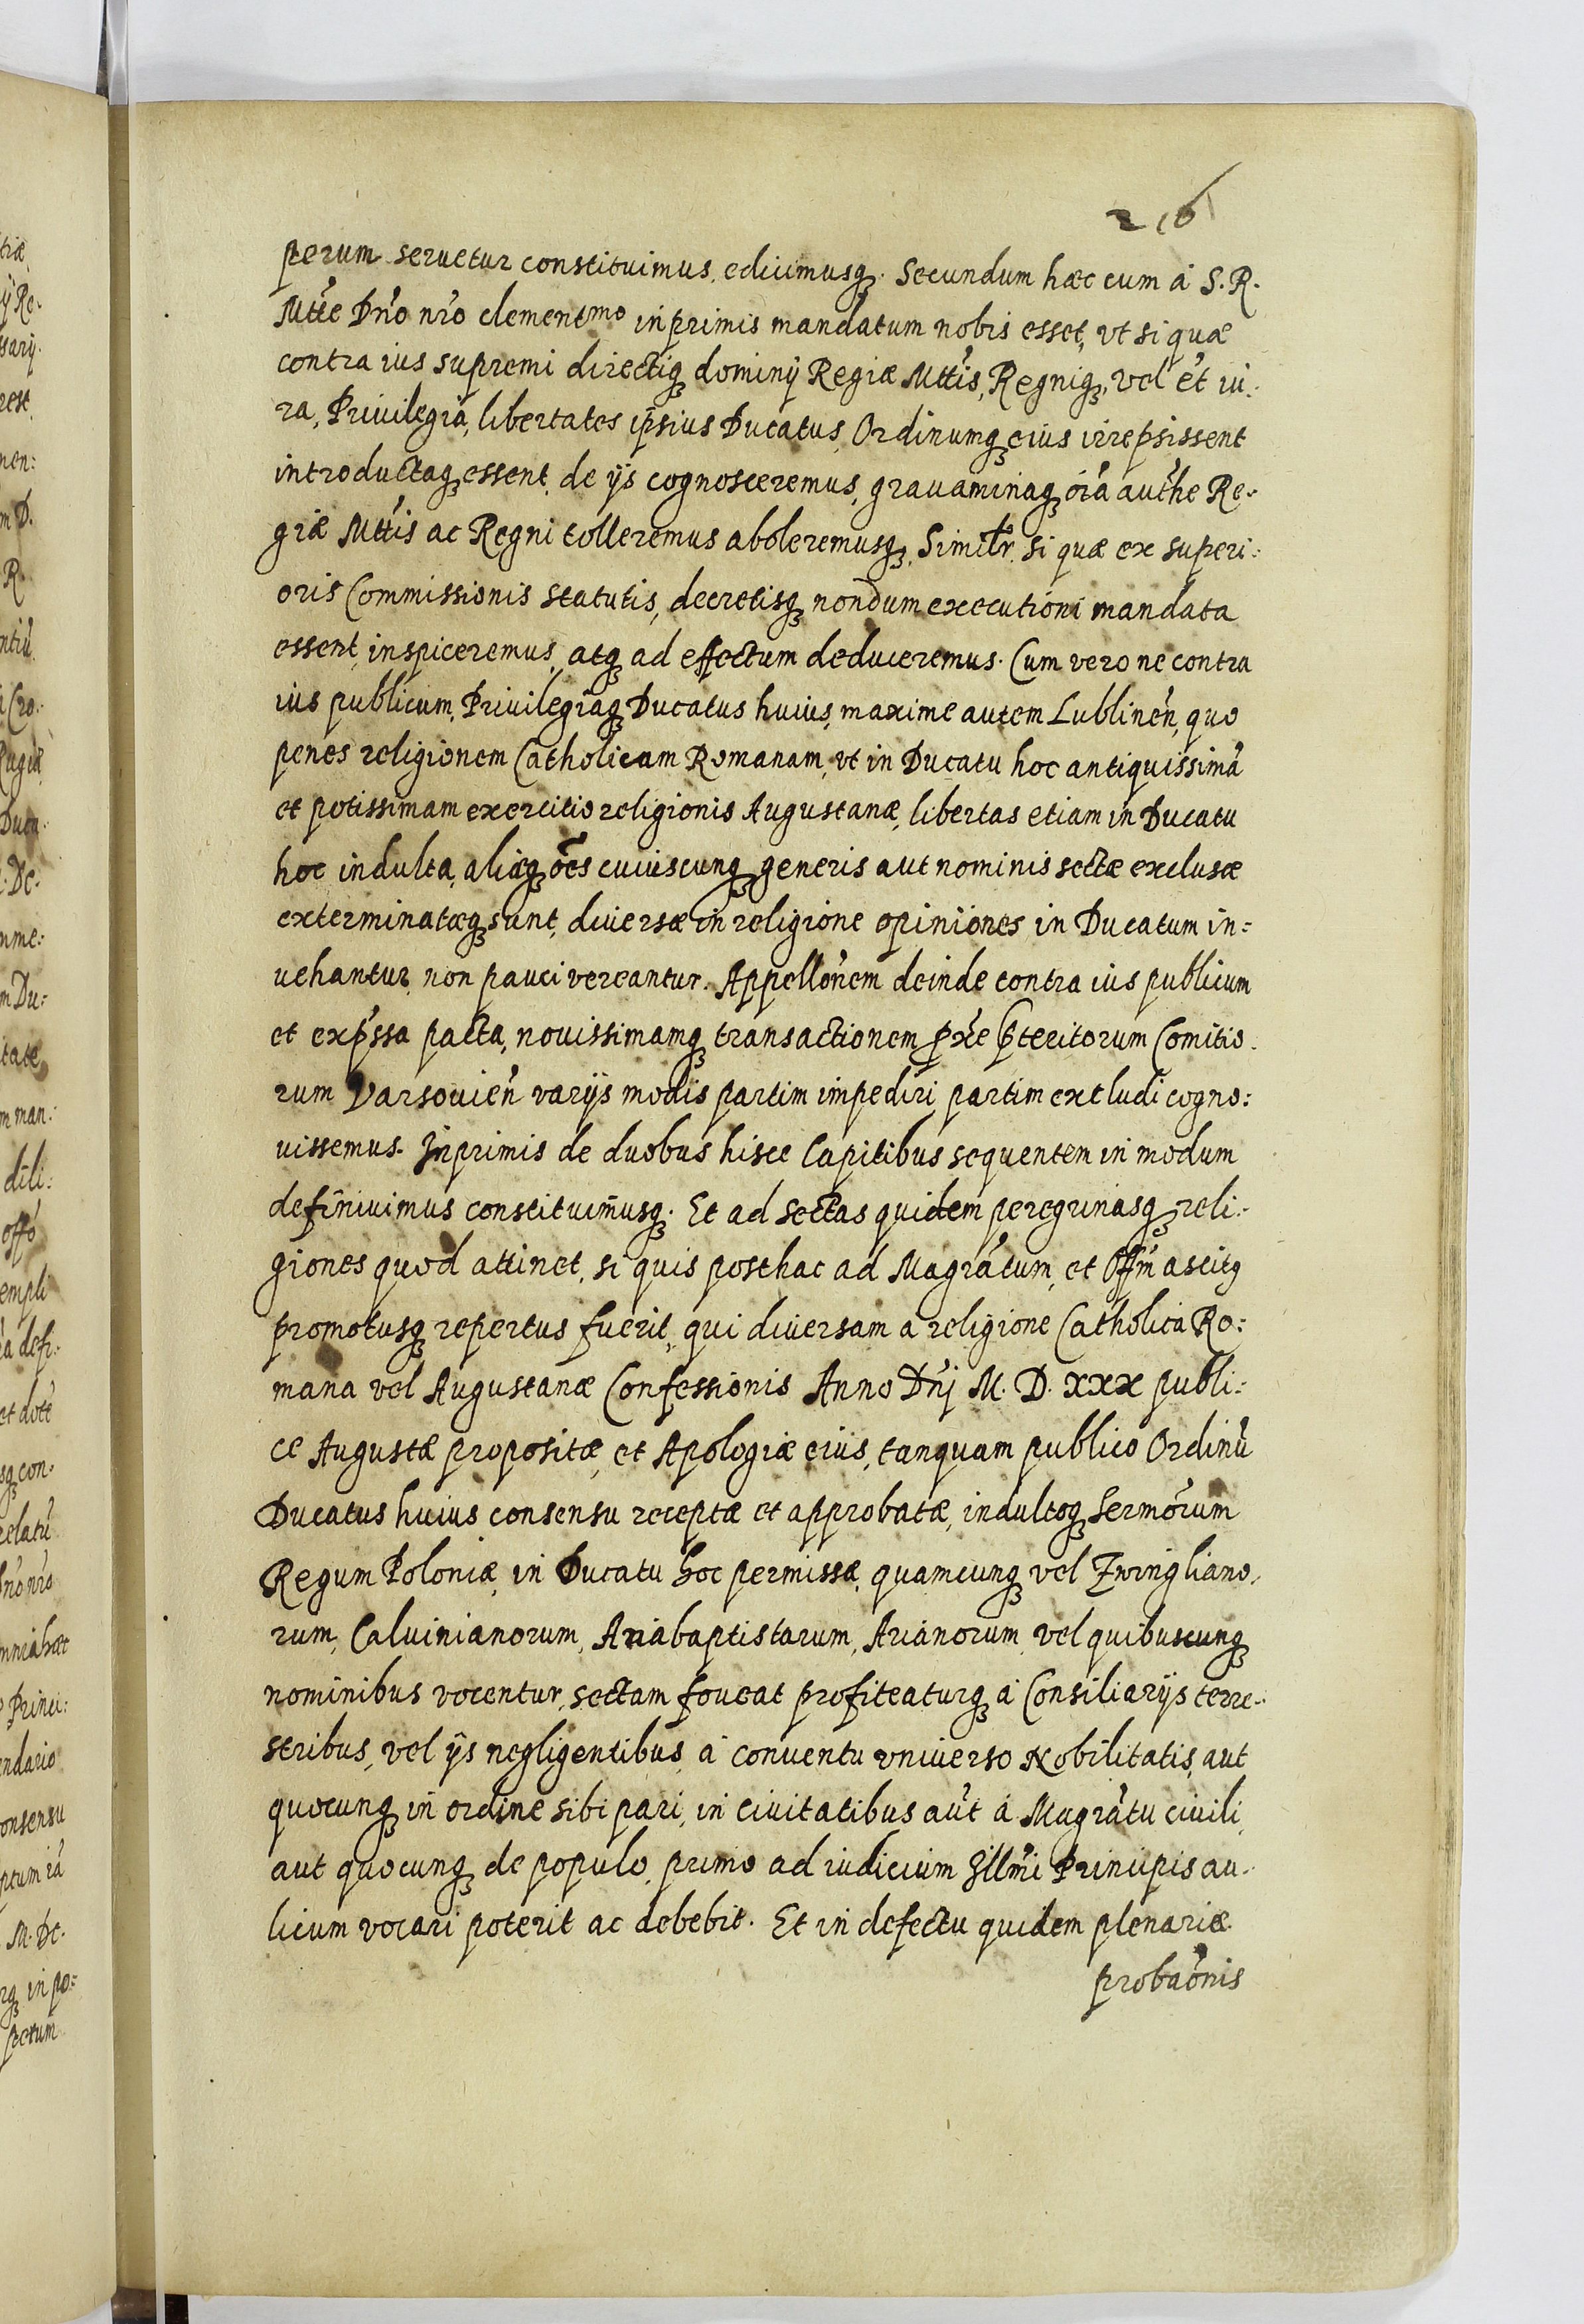 216
perum seruetur constituimus, edicimusq₃. Secundum hæc cum à S. R.
Mtte Dn̄o nr̄o clementmo inprimis mandatum nobis esset, vt si quæ
contra ius supremi directiq₃ dominij Regiæ Mttis, Regniq₃, vel et iu:
ra, Priuilegia, libertates ip̄sius Ducatus, Ordinumq₃ eius irrepsissent
introductaq₃ essent, de ijs cognosceremus, grauaminaq₃ oīa authe Re:
giæ Mttis ac Regni tolleremus aboleremusq₃. Similr̄, si quæ ex superi:
oris Commissionis statutis, decretisq₃ nondum executioni mandata
essent, inspiceremus, atq₃ ad effectum deduceremus. Cum vero ne contra
ius publicum, Priuilegiaq₃ Ducatus huius, maxime autem Lublinen̄, quo
penes religionem Catholicam Romanam, vt in Ducatu hoc antiquissimā
et potissimam exercitio religionis Augustanæ, libertas etiam in Ducatu
hoc indulta, aliæq₃ oēs cuiuscunq₃ generis aut nominis sectæ exclusæ
exterminatæq₃ sunt, diuersæ in religione opiniones in Ducatum in:
uehantur, non pauci vereantur. Appellōnem deinde contra ius publicum
et exp̄ssa pacta, nouissimamq₃ transactionem pxe p̄teritorum Comitio:
rum Varsouien̄ varijs modis partim impediri, partim excludi cogno:
uissemus. Inprimis de duobus hisce Capitibus sequentem in modum
definiuimus constituimusq₃. Et ad sectas quidem peregrinasq₃ reli:
giones quod attinet, si quis posthac ad Magrātum, et Offm̄ ascitq
promotusq₃ repertus fuerit, qui diuersam a religione Catholica Ro:
mana vel Augustanæ Confessionis Anno Dn̄j M. D. XXX publi:
ce Augustæ propositæ, et Apologiæ eius, tanquam publico Ordinū
Ducatus huius consensu receptæ et approbatæ, indultoq₃ Sermōrum
Regum Poloniæ, in Ducatu hoc permissæ, quamcunq₃ vel Zwingliano,
rum, Caluinianorum, Anabaptistarum, Arianorum, vel quibuscunq₃
nominibus vocentur, sectam foueat profiteaturq₃ à Consiliarijs terre:
stribus, vel ijs negligentibus, à conuentu vniuerso Nobilitatis, aut
quocunq₃ in ordine sibi pari, in ciuitatibus aut à Magrātu ciuili,
aut quocunq₃ de populo, primo ad iudicium Illmi Principis au:
licum vocari poterit ac debebit. Et in defectu quidem plenariæ
probaōnis